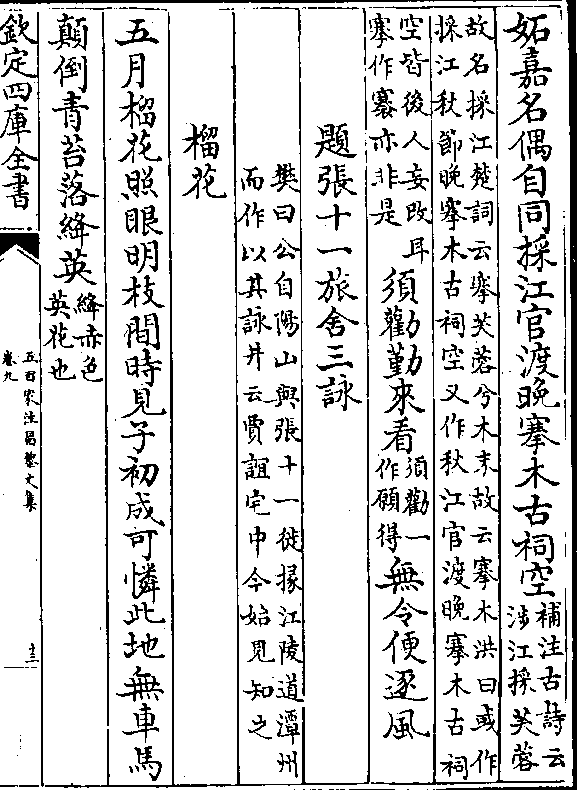 妬嘉名偶自同採江官渡晚搴木古祠空補注古詩云
涉江採芙蓉
故名採江楚詞云搴芙蓉兮木末故云搴木洪曰或作
採江秋節晚搴木古祠空又作秋江官渡晚搴木古祠
空皆後人妄改耳
搴作蹇亦非是須勸勤來看須勸一
作願得無令便逐風
題張十一旅舍三詠
樊曰公自陽山與張十一徙掾江陵道潭州
而作以其詠井云賈誼宅中今始見知之
榴花
五月榴花照眼明枝間時見子初成可憐此地無車馬
顛倒青苔落絳英絳赤色
英花也
欽定四庫全書
五百家注昌黎文集
卷九
十三